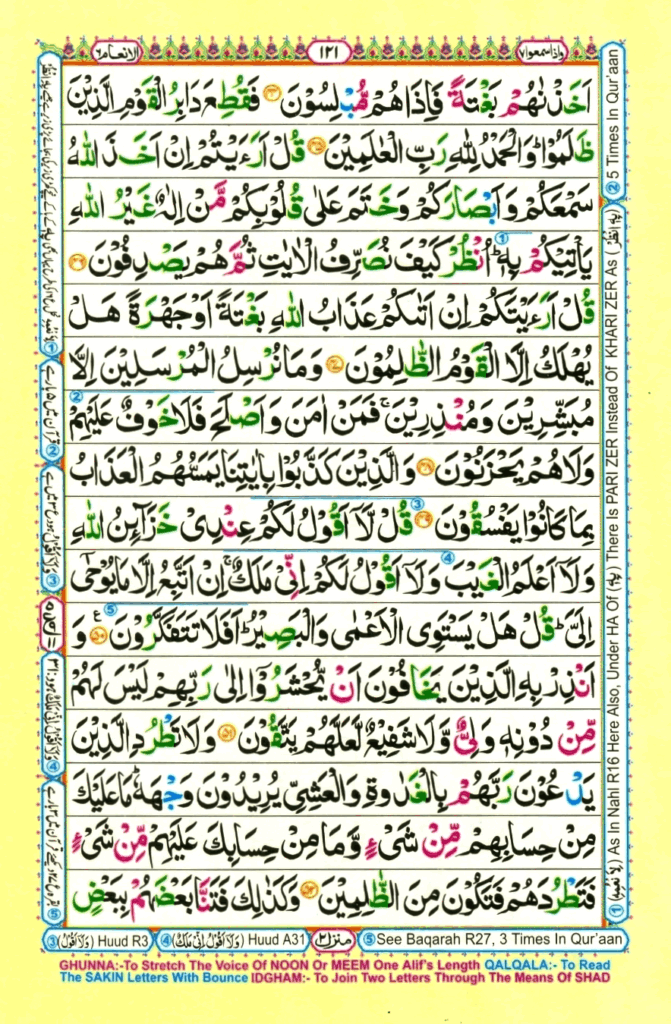 واذا سمعوا ٧
١٢١
الانعام ٦
اَخَذْنٰهُمْ بَغْتَةً فَاِذَا هُمْ مُّبْلِسُوْنَ ٤٤ فَقُطِعَ دَابِرُ الْقَوْمِ الَّذِيْنَ
ظَلَمُوْا ؕ وَالْحَمْدُ لِلّٰهِ رَبِّ الْعٰلَمِيْنَ ٤٥ قُلْ اَرَءَيْتُمْ اِنْ اَخَذَ اللّٰهُ
سَمْعَكُمْ وَاَبْصَارَكُمْ وَخَتَمَ عَلٰى قُلُوْبِكُمْ مَّنْ اِلٰهٌ غَيْرُ اللّٰهِ
يَاْتِيْكُمْ بِهٖ ؕ اُنْظُرْ كَيْفَ نُصَرِّفُ الْاٰيٰتِ ثُمَّ هُمْ يَصْدِفُوْنَ ٤٦
قُلْ اَرَءَيْتَكُمْ اِنْ اَتٰىكُمْ عَذَابُ اللّٰهِ بَغْتَةً اَوْ جَهْرَةً هَلْ
يُهْلَكُ اِلَّا الْقَوْمُ الظّٰلِمُوْنَ ٤٧ وَمَا نُرْسِلُ الْمُرْسَلِيْنَ اِلَّا
مُبَشِّرِيْنَ وَمُنْذِرِيْنَ ۚ فَمَنْ اٰمَنَ وَاَصْلَحَ فَلَا خَوْفٌ عَلَيْهِمْ
وَلَا هُمْ يَحْزَنُوْنَ ٤٨ وَالَّذِيْنَ كَذَّبُوْا بِاٰيٰتِنَا يَمَسُّهُمُ الْعَذَابُ
بِمَا كَانُوْا يَفْسُقُوْنَ ٤٩ قُلْ لَّاۤ اَقُوْلُ لَكُمْ عِنْدِىْ خَزَآئِنُ اللّٰهِ
وَلَاۤ اَعْلَمُ الْغَيْبَ وَلَاۤ اَقُوْلُ لَكُمْ اِنِّىْ مَلَكٌ ۚ اِنْ اَتَّبِعُ اِلَّا مَا يُوْحٰۤى
اِلَىَّ ؕ قُلْ هَلْ يَسْتَوِى الْاَعْمٰى وَالْبَصِيْرُ ؕ اَفَلَا تَتَفَكَّرُوْنَ ٥٠ وَ
اَنْذِرْ بِهِ الَّذِيْنَ يَخَافُوْنَ اَنْ يُّحْشَرُوْۤا اِلٰى رَبِّهِمْ لَيْسَ لَهُمْ
مِّنْ دُوْنِهٖ وَلِىٌّ وَّلَا شَفِيْعٌ لَّعَلَّهُمْ يَتَّقُوْنَ ٥١ وَلَا تَطْرُدِ الَّذِيْنَ
يَدْعُوْنَ رَبَّهُمْ بِالْغَدٰوةِ وَالْعَشِىِّ يُرِيْدُوْنَ وَجْهَهٗ ؕ مَا عَلَيْكَ
مِنْ حِسَابِهِمْ مِّنْ شَىْءٍ وَّمَا مِنْ حِسَابِكَ عَلَيْهِمْ مِّنْ شَىْءٍ
فَتَطْرُدَهُمْ فَتَكُوْنَ مِنَ الظّٰلِمِيْنَ ٥٢ وَكَذٰلِكَ فَتَنَّا بَعْضَهُمْ بِبَعْضٍ
② 5 Times In Qur'aan
① As In Nahl R16 Here Also, Under HA Of (بِهٖ) There Is PARI ZER Instead Of KHARI ZER As (بِهِ انْظُرْ)
③ (وَلَا اَقُوْلُ) Huud R3
④ (وَلَا اَقُوْلُ اِنِّىْ مَلَكٌ) Huud A31
منزل ٢
⑤ See Baqarah R27, 3 Times In Qur'aan
GHUNNA:-To Stretch The Voice Of NOON Or MEEM One Alif's Length QALQALA:- To Read
The SAKIN Letters With Bounce IDGHAM:- To Join Two Letters Through The Means Of SHAD